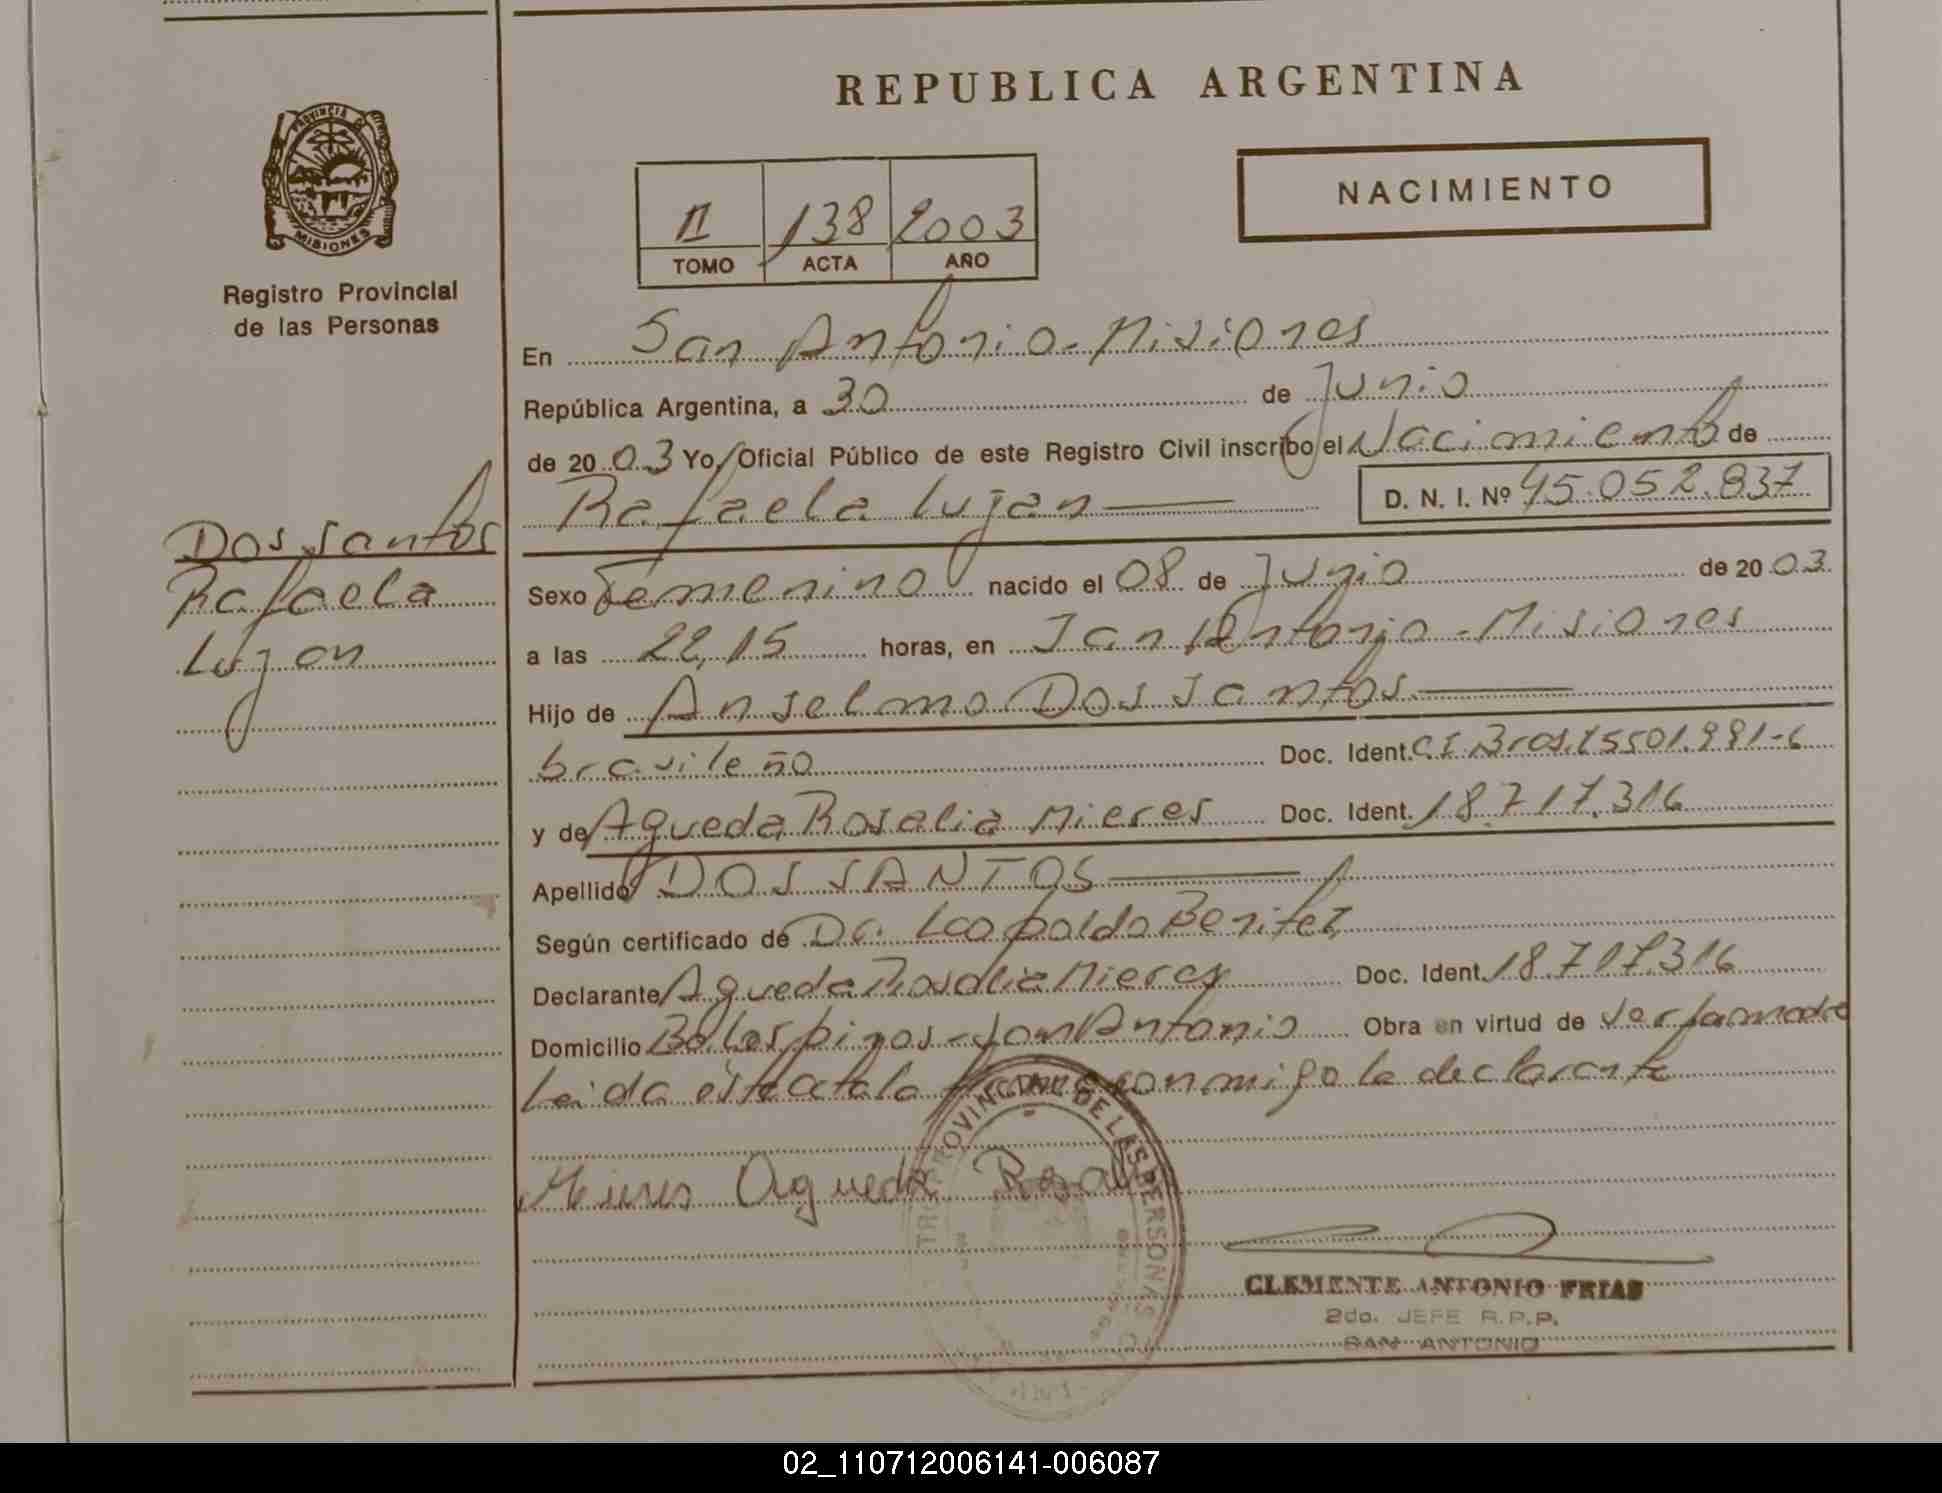 REPUBLICA ARGENTINA
PROVINCIA DE
MISIONES
Registro Provincial
de las Personas
NACIMIENTO
II 138 2003
TOMO ACTA AÑO
En San Antonio - Misiones
República Argentina, a 30 de Junio
de 2003 Yo, Oficial Público de este Registro Civil inscribo el Nacimiento de
Rafaela Lujan
D. N. I. Nº 45.052.837
Dos santos
Rafaela
Lujan
Sexo Femenino nacido el 08 de Junio de 2003
a las 22,15 horas, en San Antonio - Misiones
Hijo de Anselmo Dos Santos
brasileño Doc. Ident. CI. Bras. 15501.991-6
y de Agueda Rosalia Mieres Doc. Ident. 18.717.316
Apellido DOS SANTOS
Según certificado de Dr. Leopoldo Benitez
Declarante Agueda Rosalia Mieres Doc. Ident. 18.717.316
Domicilio Bo. Los pinos - San Antonio Obra en virtud de ser la madre
Leida este acta la firma conmigo la declarante
Mieres Agueda Rosalia
PROVINCIAL DE LAS PERSONAS
CLEMENTE ANTONIO FRIAS
2do. JEFE R.P.P.
SAN ANTONIO
02_110712006141-006087